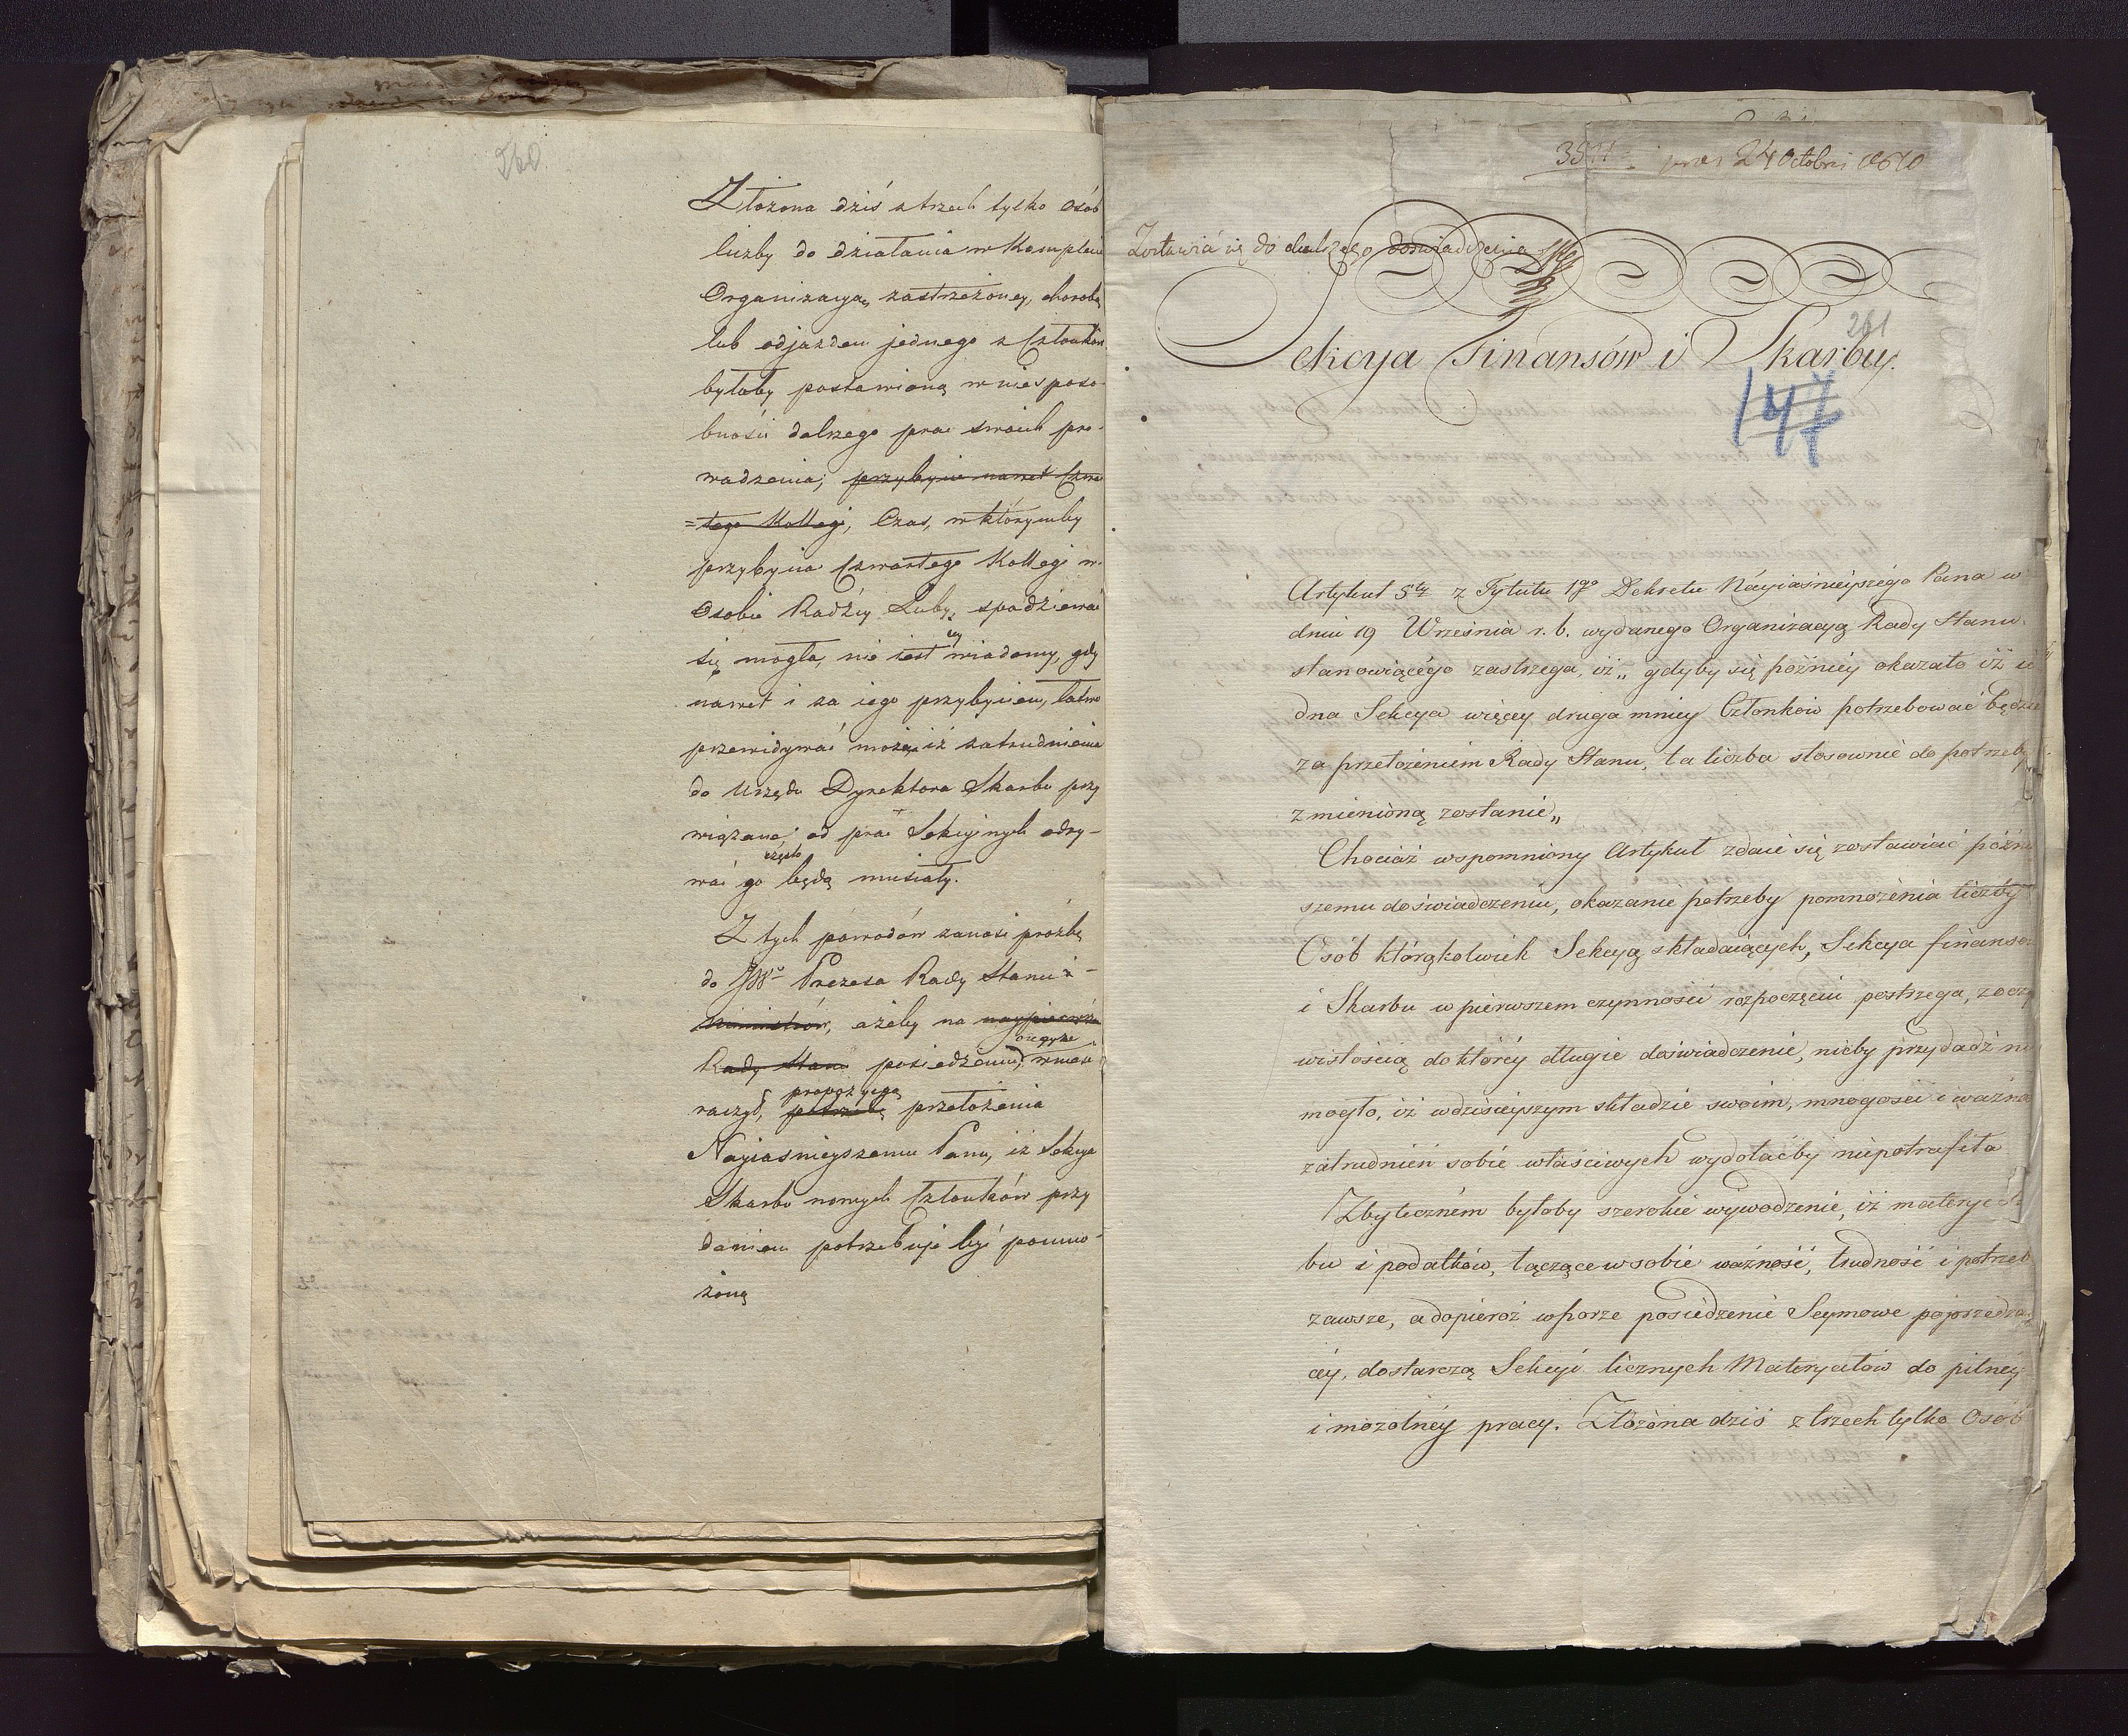 260.
Złożona dziś z trzech tylko Osób
liczby do działania w Komplecie
Organizacyą zastrzeżoney, chorobą
lub odjazdem jednego z Członków
byłaby postawioną w niesposo-
bności dalszego prac swoich pro-
wadzenia; przybycie nawet Czwar
=tego Kollegi, Czas, w którymby
przybycia Czwartego Kollegi w
Osobie Radźcy Łuby, spodziewać
się mogła, nie iest wiadomy, gdy
nawet i za iego przybyciem, łatwo
przewidywać można iż zatrudnienia
do Urzędu Dyrektora Skarbu przy
wiązane od prac Sekcyjnych odry-
często
wać go będą musiały.
Z tych powodów zanosi prożbę
do JWo Prezesa Rady Stanu i
Ministrów, ażeby na naypierwsze
Rady Stanu posiedzeniu wnieść
raczył, propozycyą potrzebę przełożenia
Nayiasnieyszemu Panu, iż Sekcya
Skarbu nowych Członków przy
daniem potrzebuje być pomno-
żoną
24 Octobris 1810
Zostawić się do dalszego doświadczenia
261
Sekcya Finansów i Skarbu.
147
Artykuł 5ty z Tytułu 1go Dekretu Nayiaśnieyszégo Pana w
dniu 19 Września r. b. wydanego Organizacyą Rady Stanu
stanowiącégo zastrzega, iż „ gdyby się poźniéy okazało iż ie
dna Sekcya więcey druga mniey Członków potrzebować będzie
za przełożeniem Rady Stanu, ta liczba stosownie do potrzeby
zmienioną zostanie „
Chociaż wspomniony Artykuł zdaie się zostawiać późni
szemu doświadczeniu, okazanie potrzeby pomnożenia liczby
Osób którąkolwiek Sekcyą składaiących, Sekcya finansów
i Skarbu w pierwszem czynności rozpoczęciu postrzega, z oczy
wistością do któréy długie doświadczenie, nicby przydadź nie
mogło, iż w dzisieyszym składzie swoim, mnogości i ważno
zatrudnień sobie właściwych wydołaćby niepotrafiła
Zbyteczném byłoby szerokie wywodzenie, iż materye Skar
bu i podatków, łączące w sobie ważność, trudność i potrzeb
zawsze, a dopieroż w porze posiedzenie Seymowe poprzedza
cey, dostarczą Sekcyi licznych Materyałów do pilnéy
i mozolnéy pracy. Złożona dziś z trzech tylko Osób